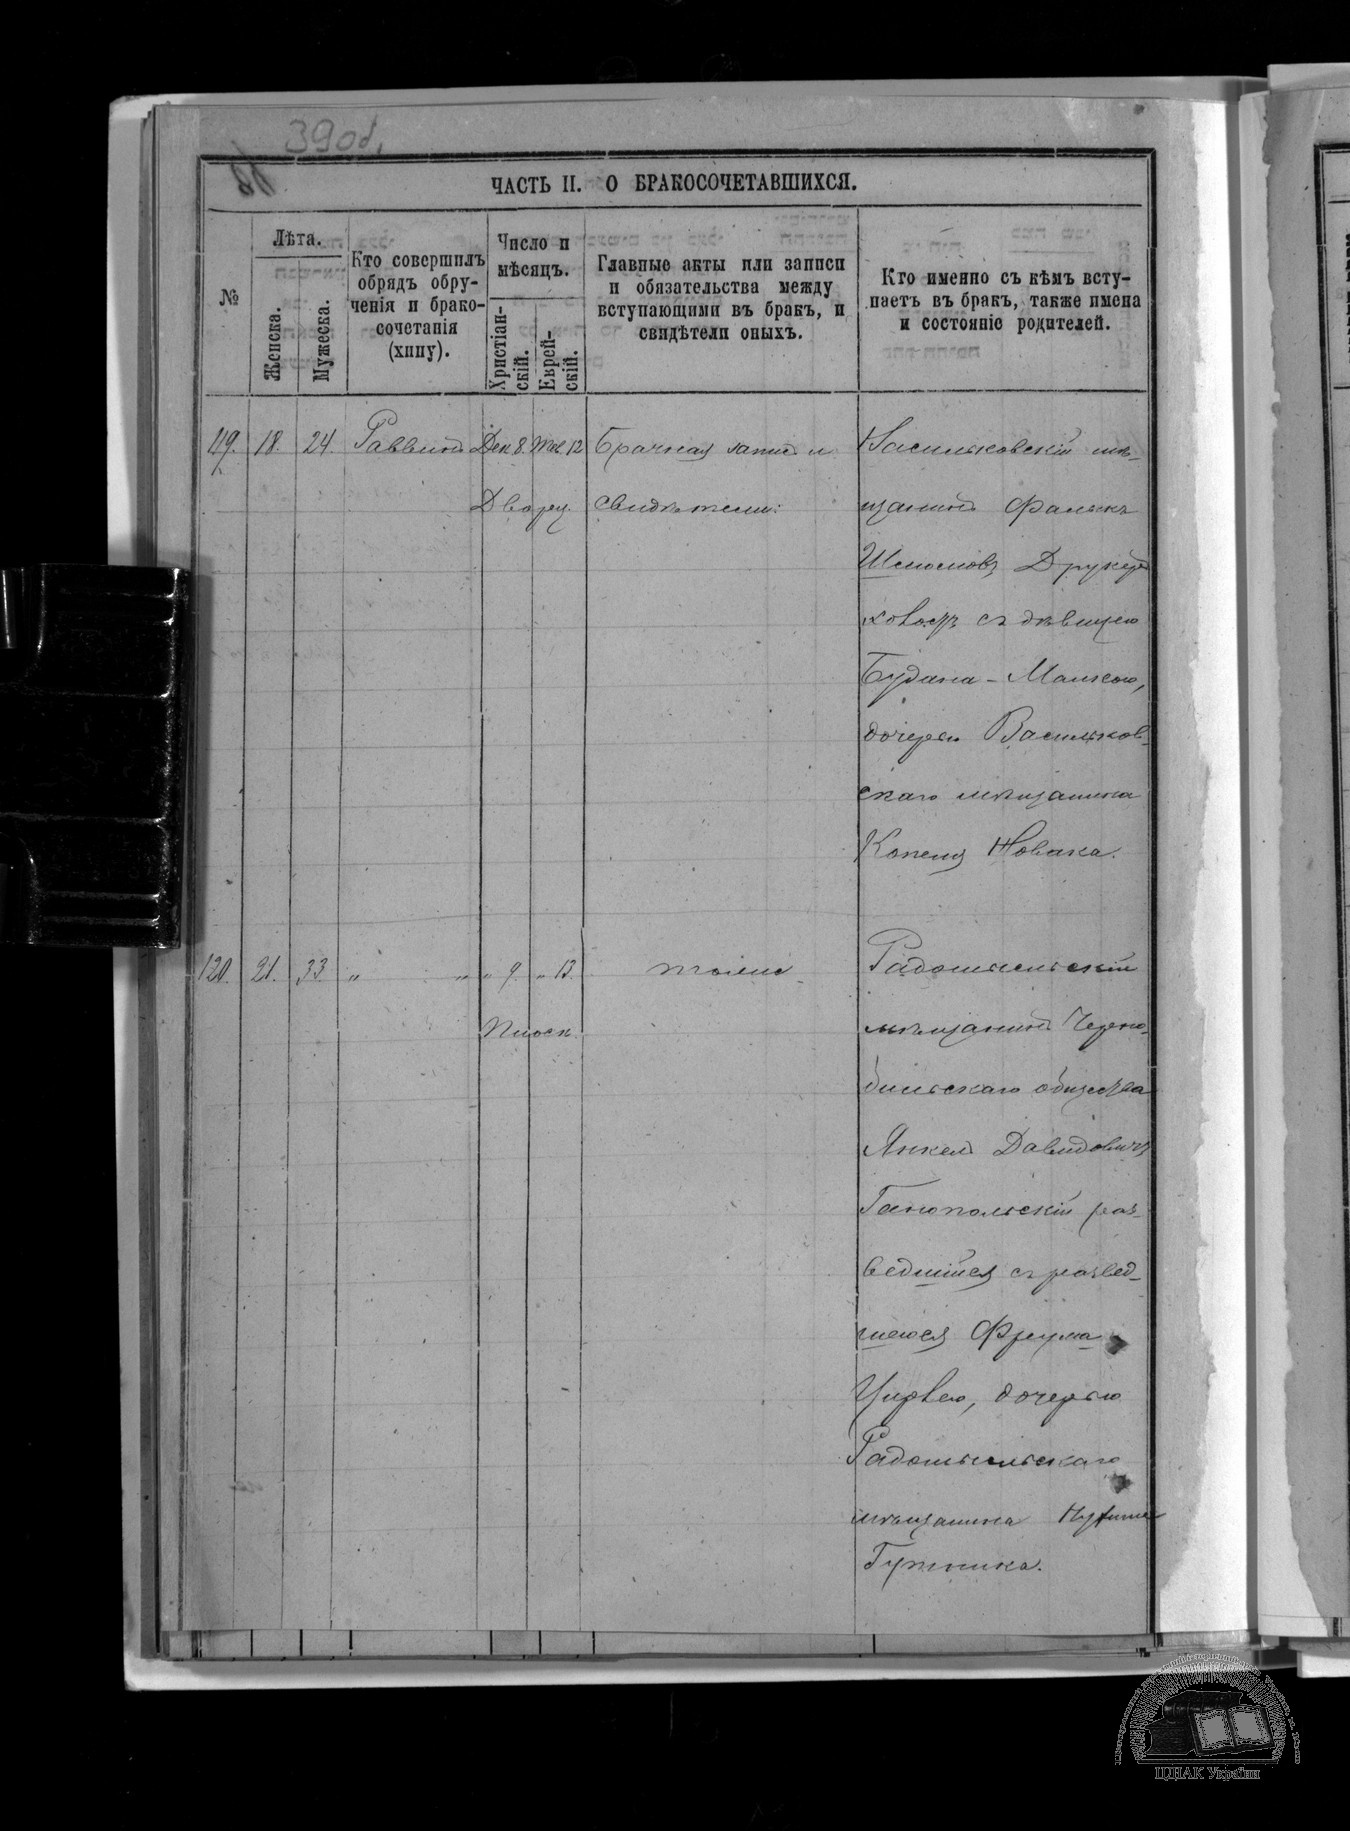 39об.
ЧАСТЬ II. О БРАКОСОЧЕТАВШИХСЯ.
№
Лѣта.
Женска.
Мужеска.
Кто совершилъ
обрядъ обру-
ченія и брако-
сочетанія
(хипу).
Число и
мѣсяцъ.
Христіан-
скій.
Еврей-
скій.
Главные акты или записи
и обязательства между
вступающими въ бракъ, и
свидѣтели оныхъ.
Кто именно съ кѣмъ всту-
паетъ въ бракъ, также имена
и состояніе родителей.
119. 18. 24. Раввинъ Дек 8. 12 Брачная запись и Васильковскій мѣ-
Дворец. свидѣтели: щанинъ Фалькъ
Шлiомовъ
съ дѣвицею
Малкою,
дочерью Васильков-
скаго мѣщанина
Копеля Новака.
120. 21. 33. " " " 9. " 13. тоже Радомысльскій
Плоск. мѣщанинъ Черно-
бильскаго общества
Янкель Давидовичъ
Ганопольскій раз-
ведшійся съ развед-
шеюся Фрума
Цирвею, дочерью
Радомысльскаго
мѣщанина
Гутника.
ЦДІАК України